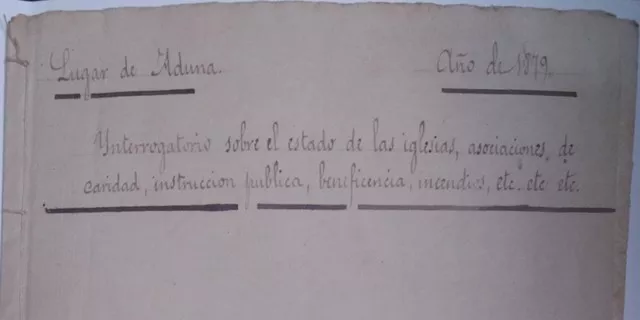 Lugar de Aduna.
Año de 1879.
Ynterrogatorio sobre el estado de las iglesias, asociaciones, de
caridad, instruccion publica, beneficencia, incendios, etc. etc etc.